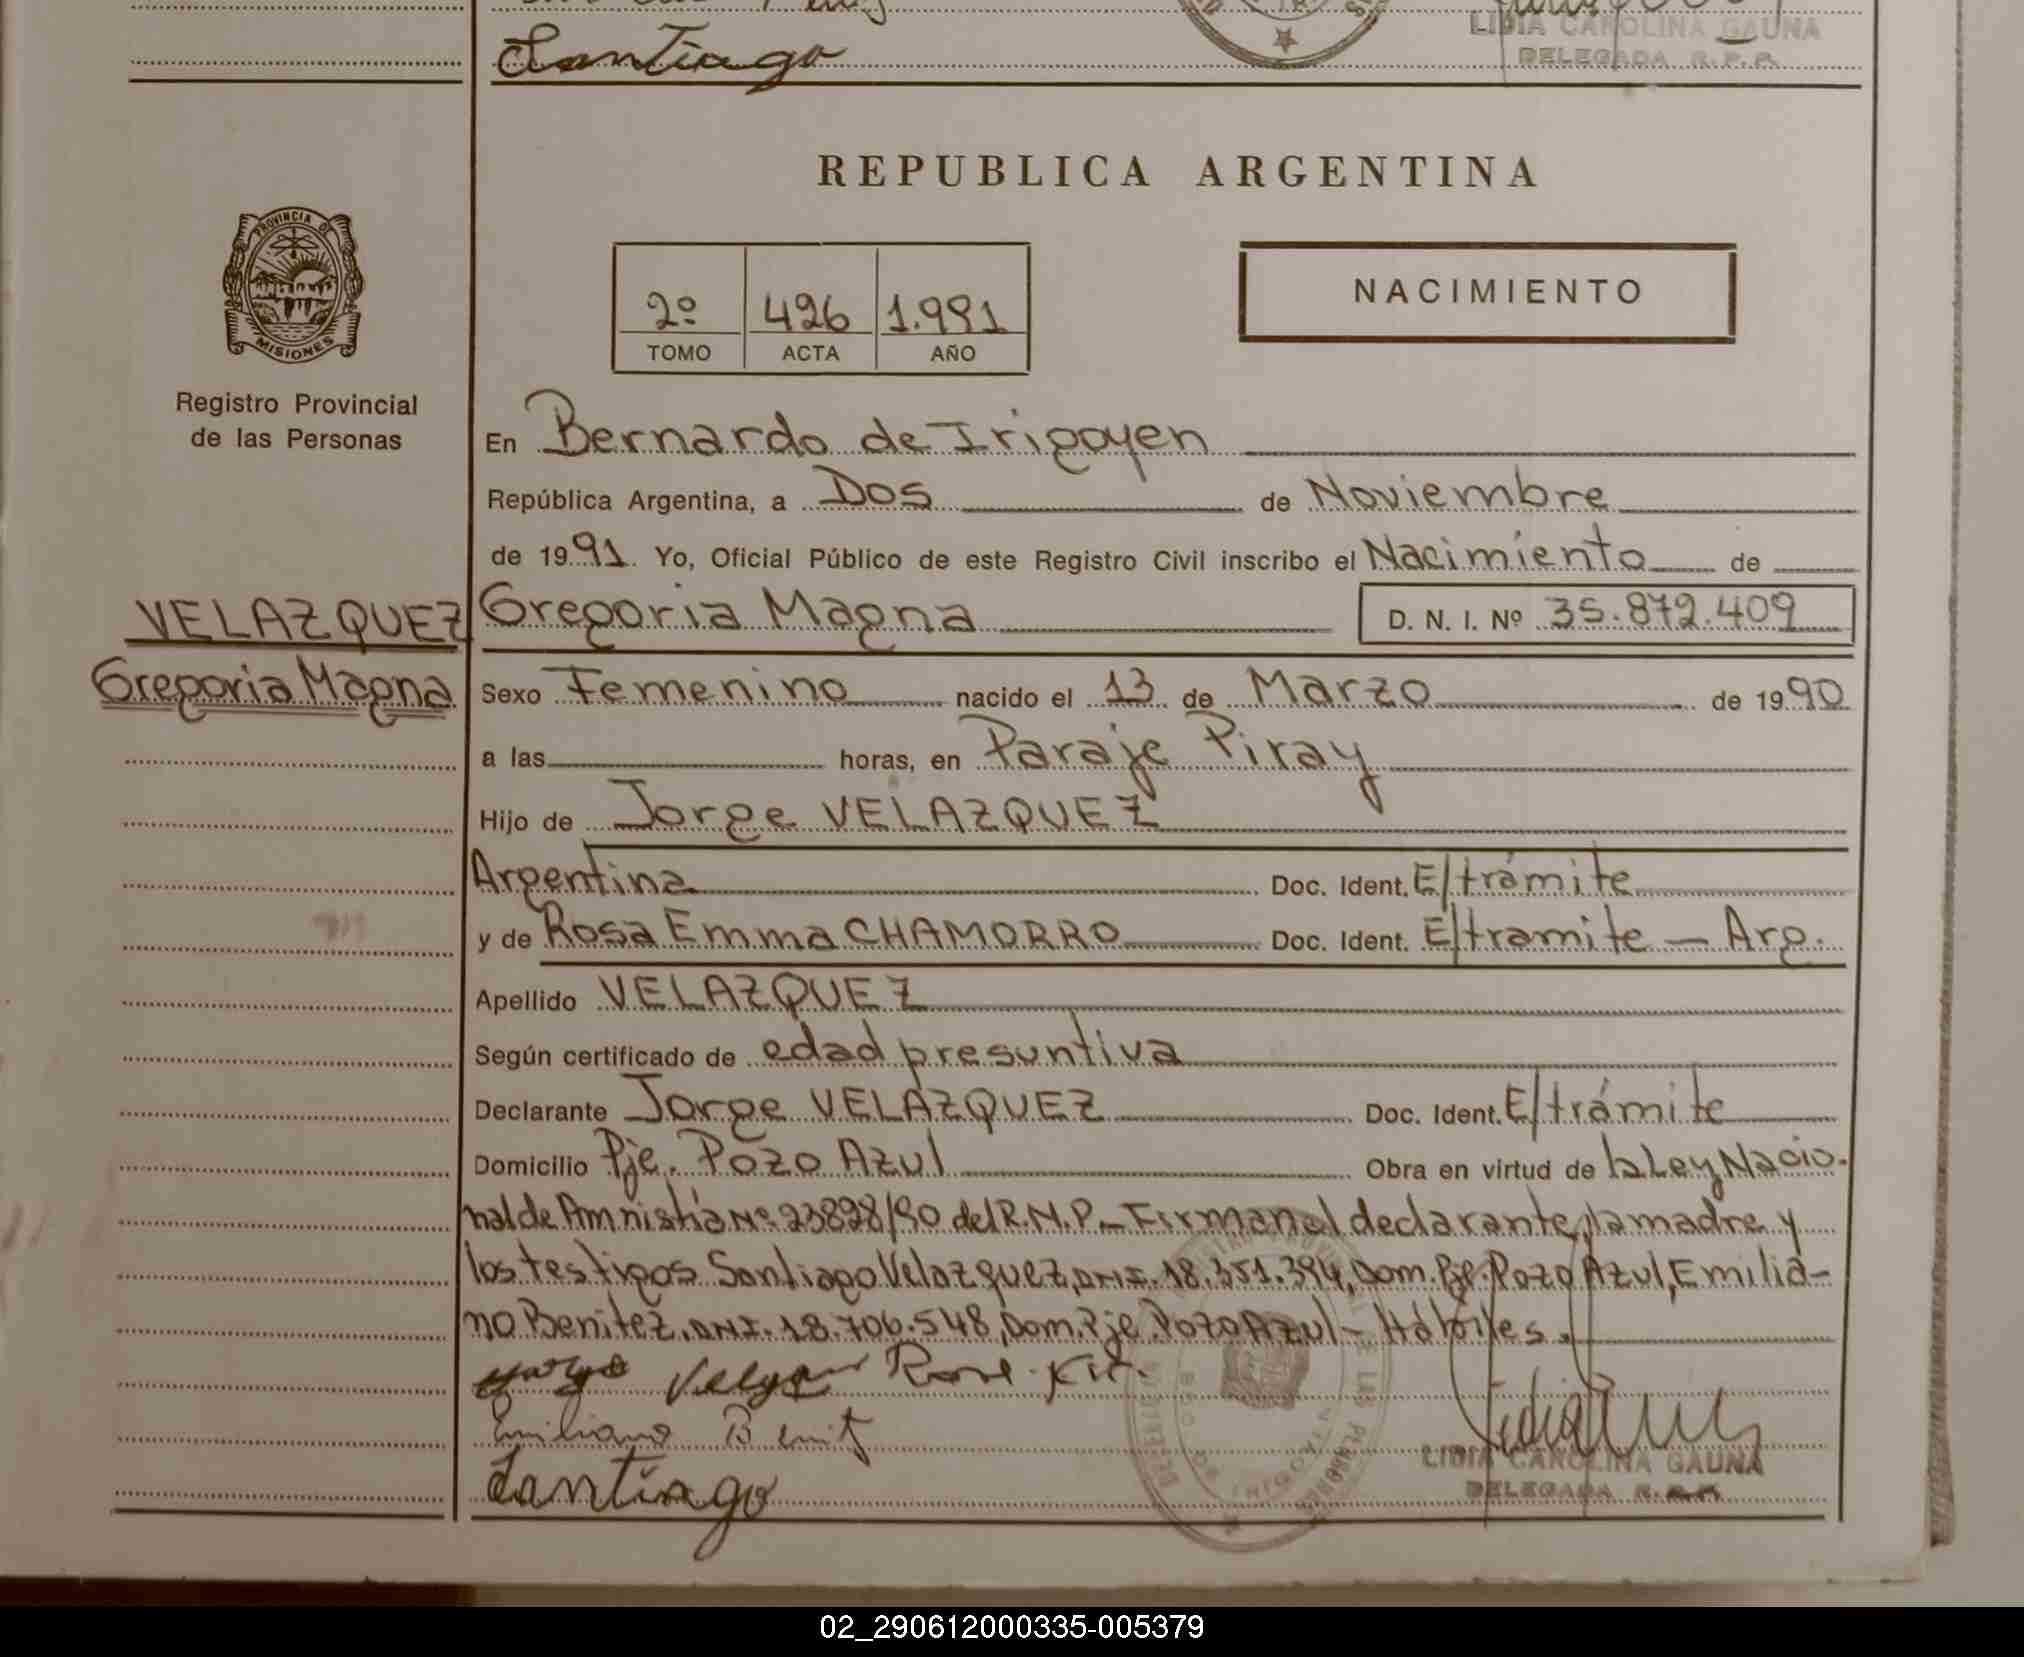 Santiago
LIDIA CAROLINA GAUNA
DELEGADA R.P.P.
REPUBLICA ARGENTINA
PROVINCIA DE
MISIONES
Registro Provincial
de las Personas
2º 426 1.991
TOMO ACTA AÑO
NACIMIENTO
En Bernardo de Irigoyen
República Argentina, a Dos de Noviembre
de 1991. Yo, Oficial Público de este Registro Civil inscribo el Nacimiento de
VELAZQUEZ Gregoria Magna D. N. I. Nº 35.872.409
Gregoria Magna Sexo Femenino nacido el 13 de Marzo de 1990
a las horas, en Paraje Piray
Hijo de Jorge VELAZQUEZ
Argentina Doc. Ident. E/trámite
y de Rosa Emma CHAMORRO Doc. Ident. E/tramite — Arg.
Apellido VELAZQUEZ
Según certificado de edad presuntiva
Declarante Jorge VELAZQUEZ Doc. Ident. E/trámite
Domicilio Pje. Pozo Azul Obra en virtud de la Ley Nacio-
nal de Amnistía Nº 23828/90 del R.N.P.- Firman el declarante, la madre y
los testigos Santiago Velazquez, DNI. 18.351.394, Dom. Pje. Pozo Azul, Emilia-
no Benitez, DNI. 18.706.548, Dom. Pje. Pozo Azul - Hábiles.
Emiliano Benit
Santiago
LIDIA CAROLINA GAUNA
DELEGADA R.P.P.
02_290612000335-005379